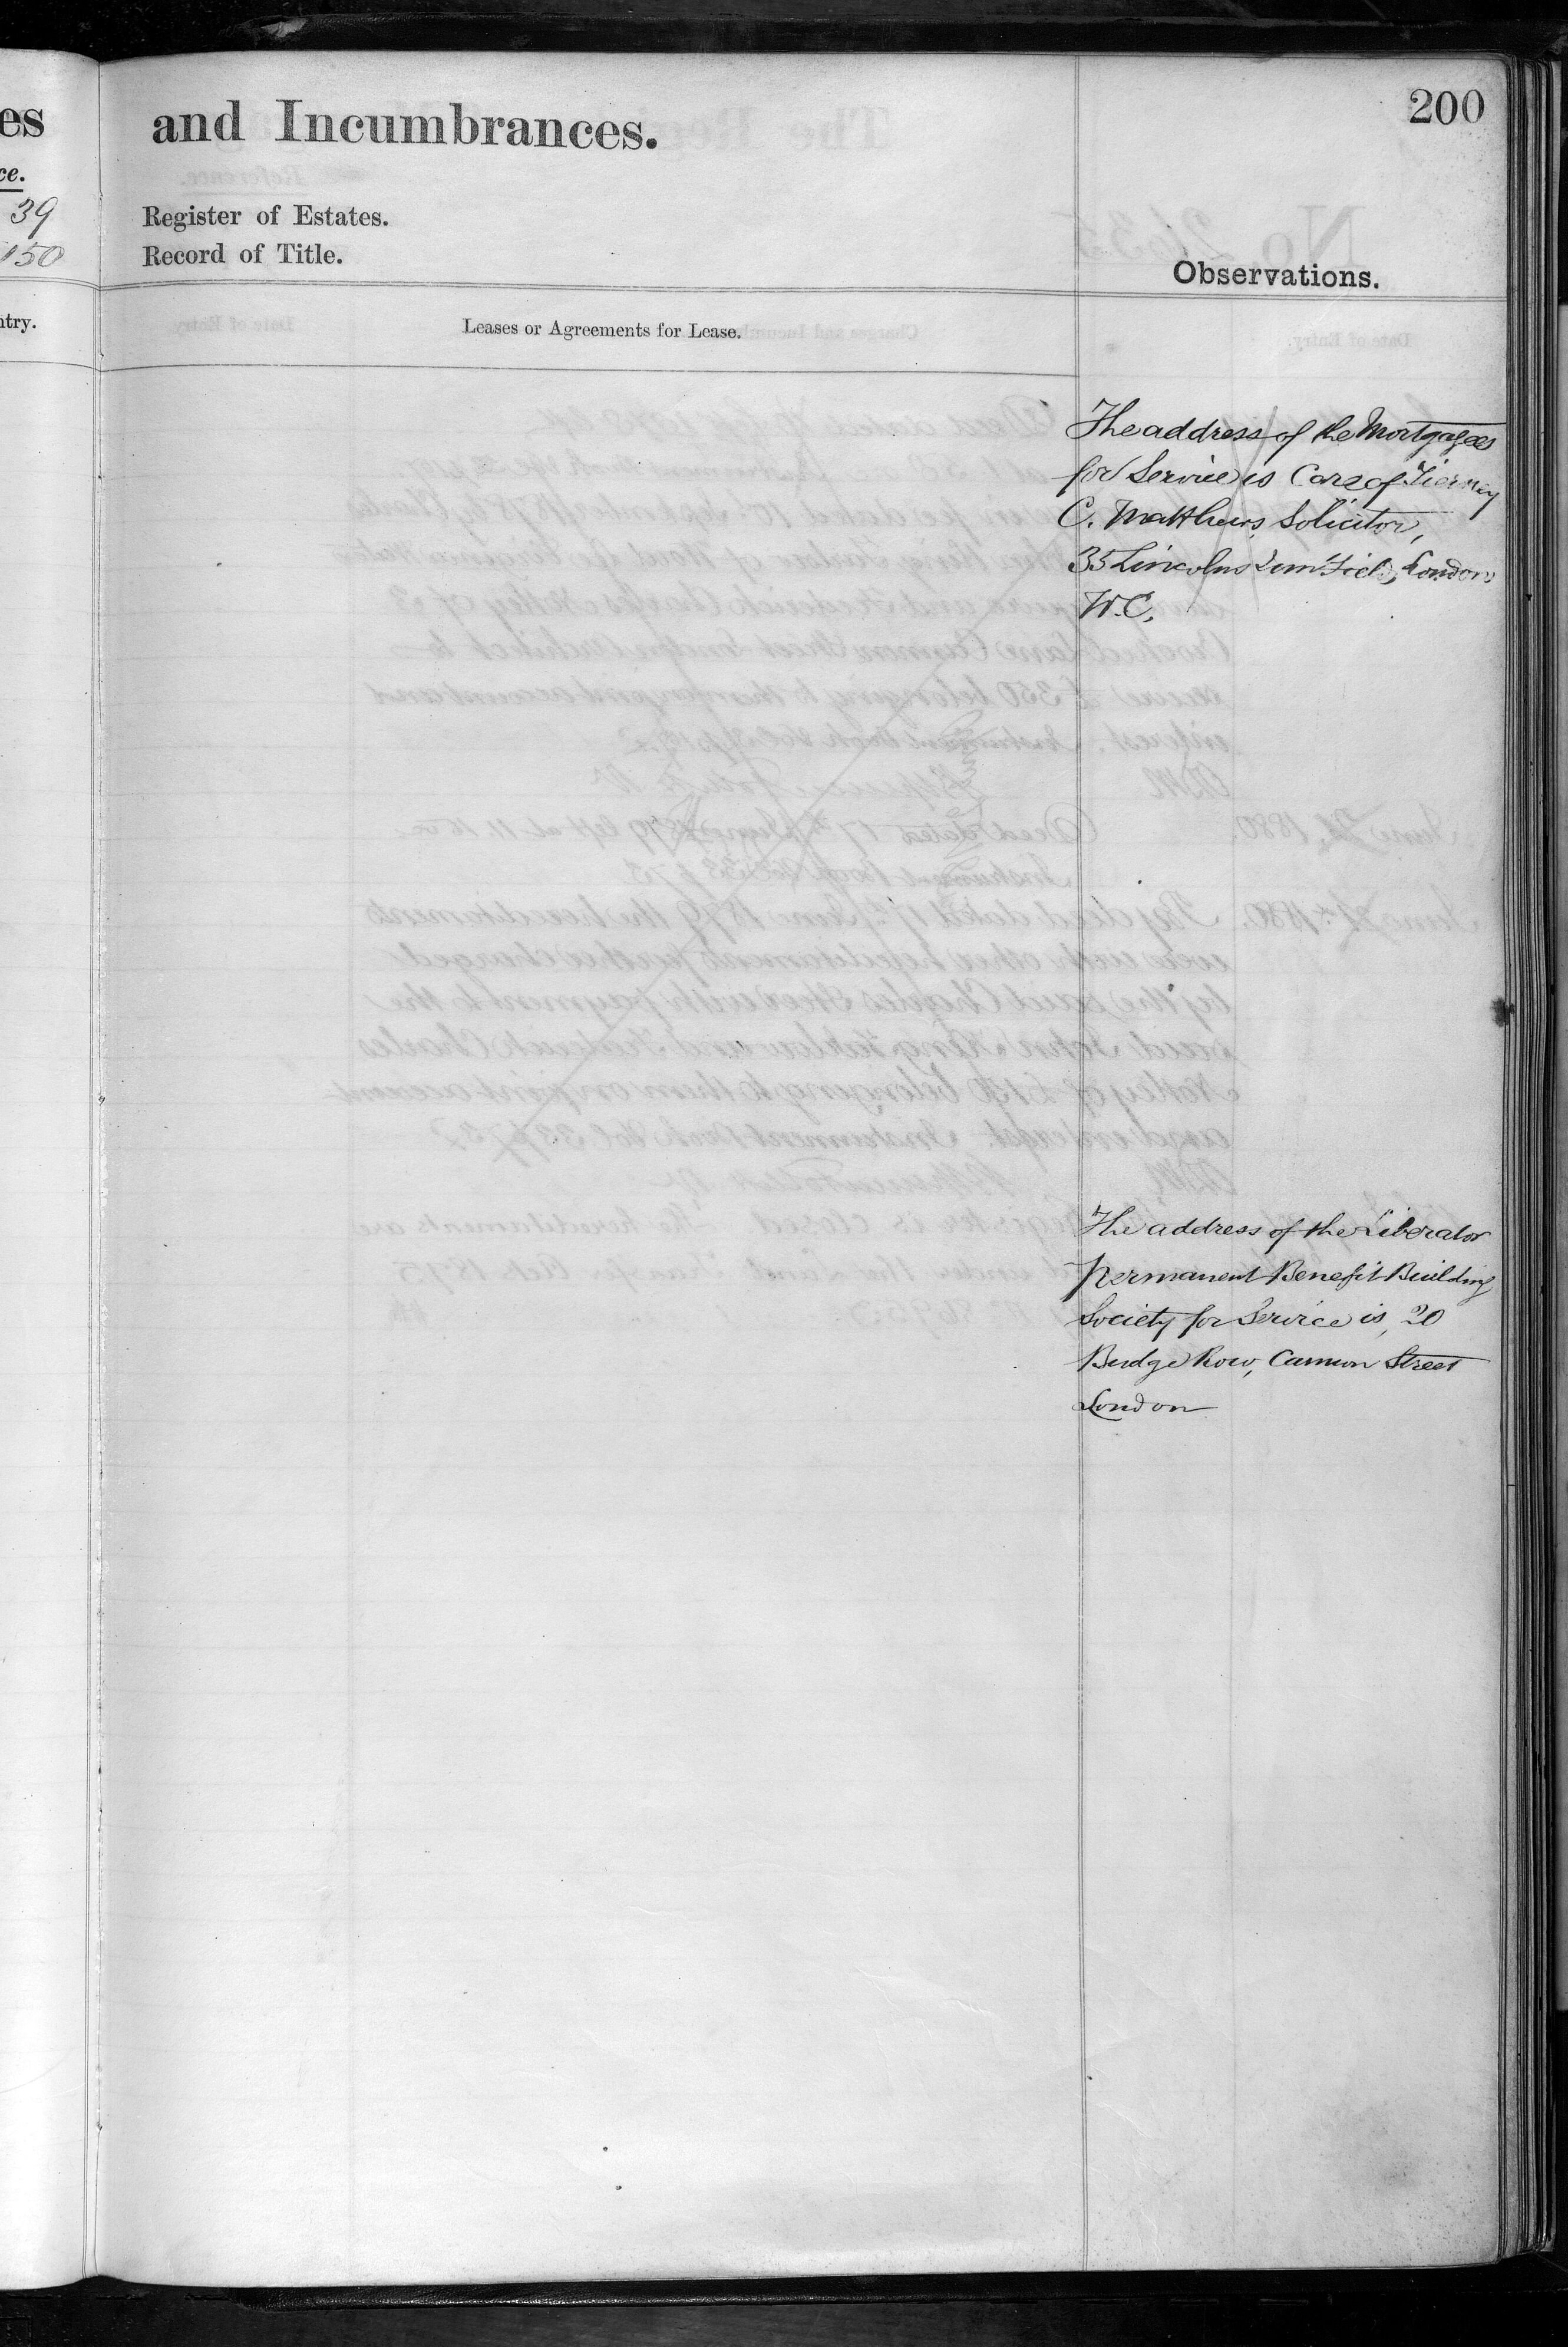 es
ce.
39
150
ntry.
and Incumbrances.
200
Register of Estates.
Record of Title.
Observations.
Leases or Agreements for Lease.
The address of the Mortgagees
for Service is Care of Tierney
C. Matthews, Solicitor,
35 Lincolns Inn Fields, London
W.C.
The address of the Liberator
Permanent Benefit Building
Society for Service is, 20
Budge Row, Cannon Street
London